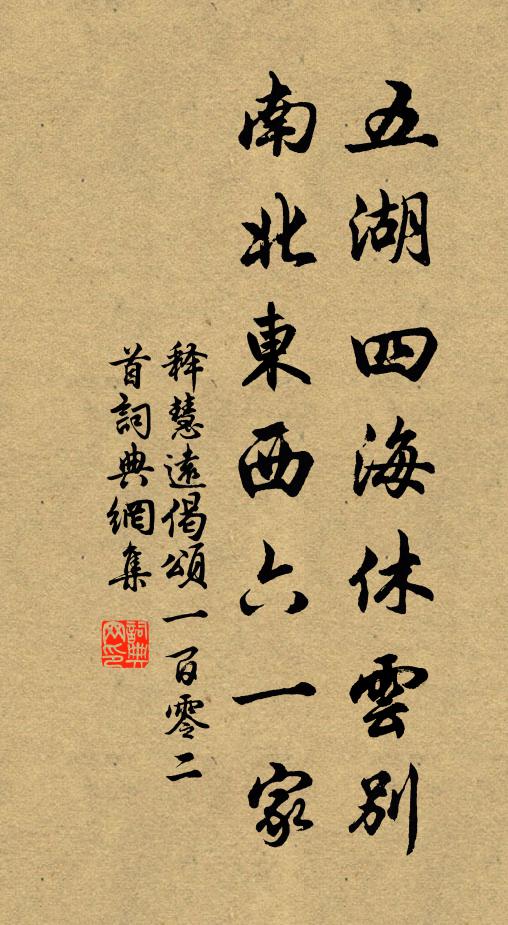 五湖四海休雲別
南北東西六一家
釋慧遠偈頌一百零二
首詞典網集
詞典网印